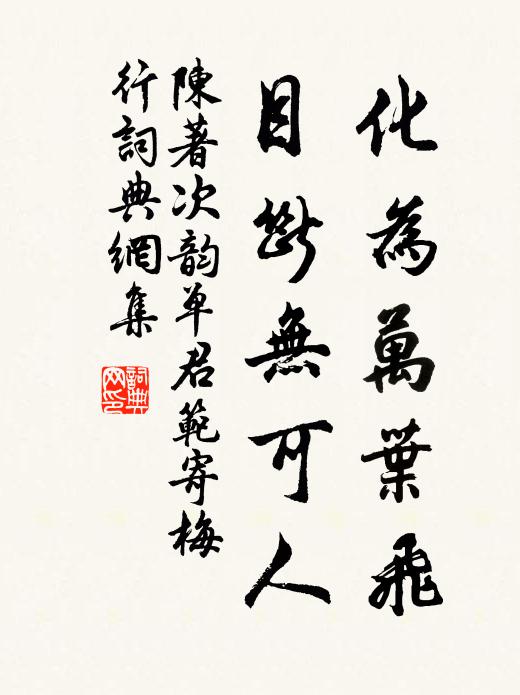 化為萬葉飛
目斷無可人
陳著次韵单君範寄梅
行詞典網集
詞典网印